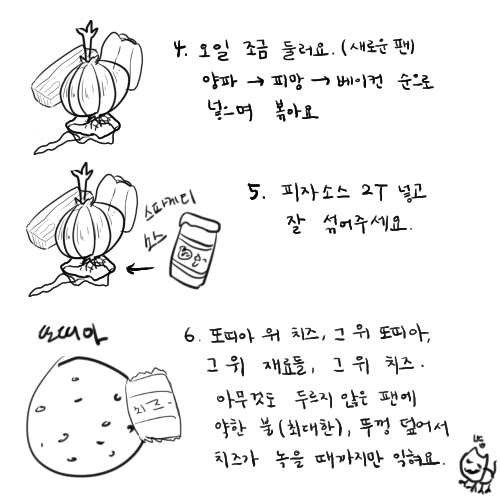 4. 오일 조금 둘러요. (새로운 팬)
양파 → 피망 → 베이컨 순으로
넣으며 볶아요
스파게티
소스
5. 피자소스 2T 넣고
잘 섞어주세요.
또띠아
치즈
6. 또띠아 위 치즈, 그 위 또띠아,
그 위 재료들, 그 위 치즈.
아무것도 두르지 않은 팬에
약한 불(최대한), 뚜껑 덮어서
치즈가 녹을 때까지만 익혀요.